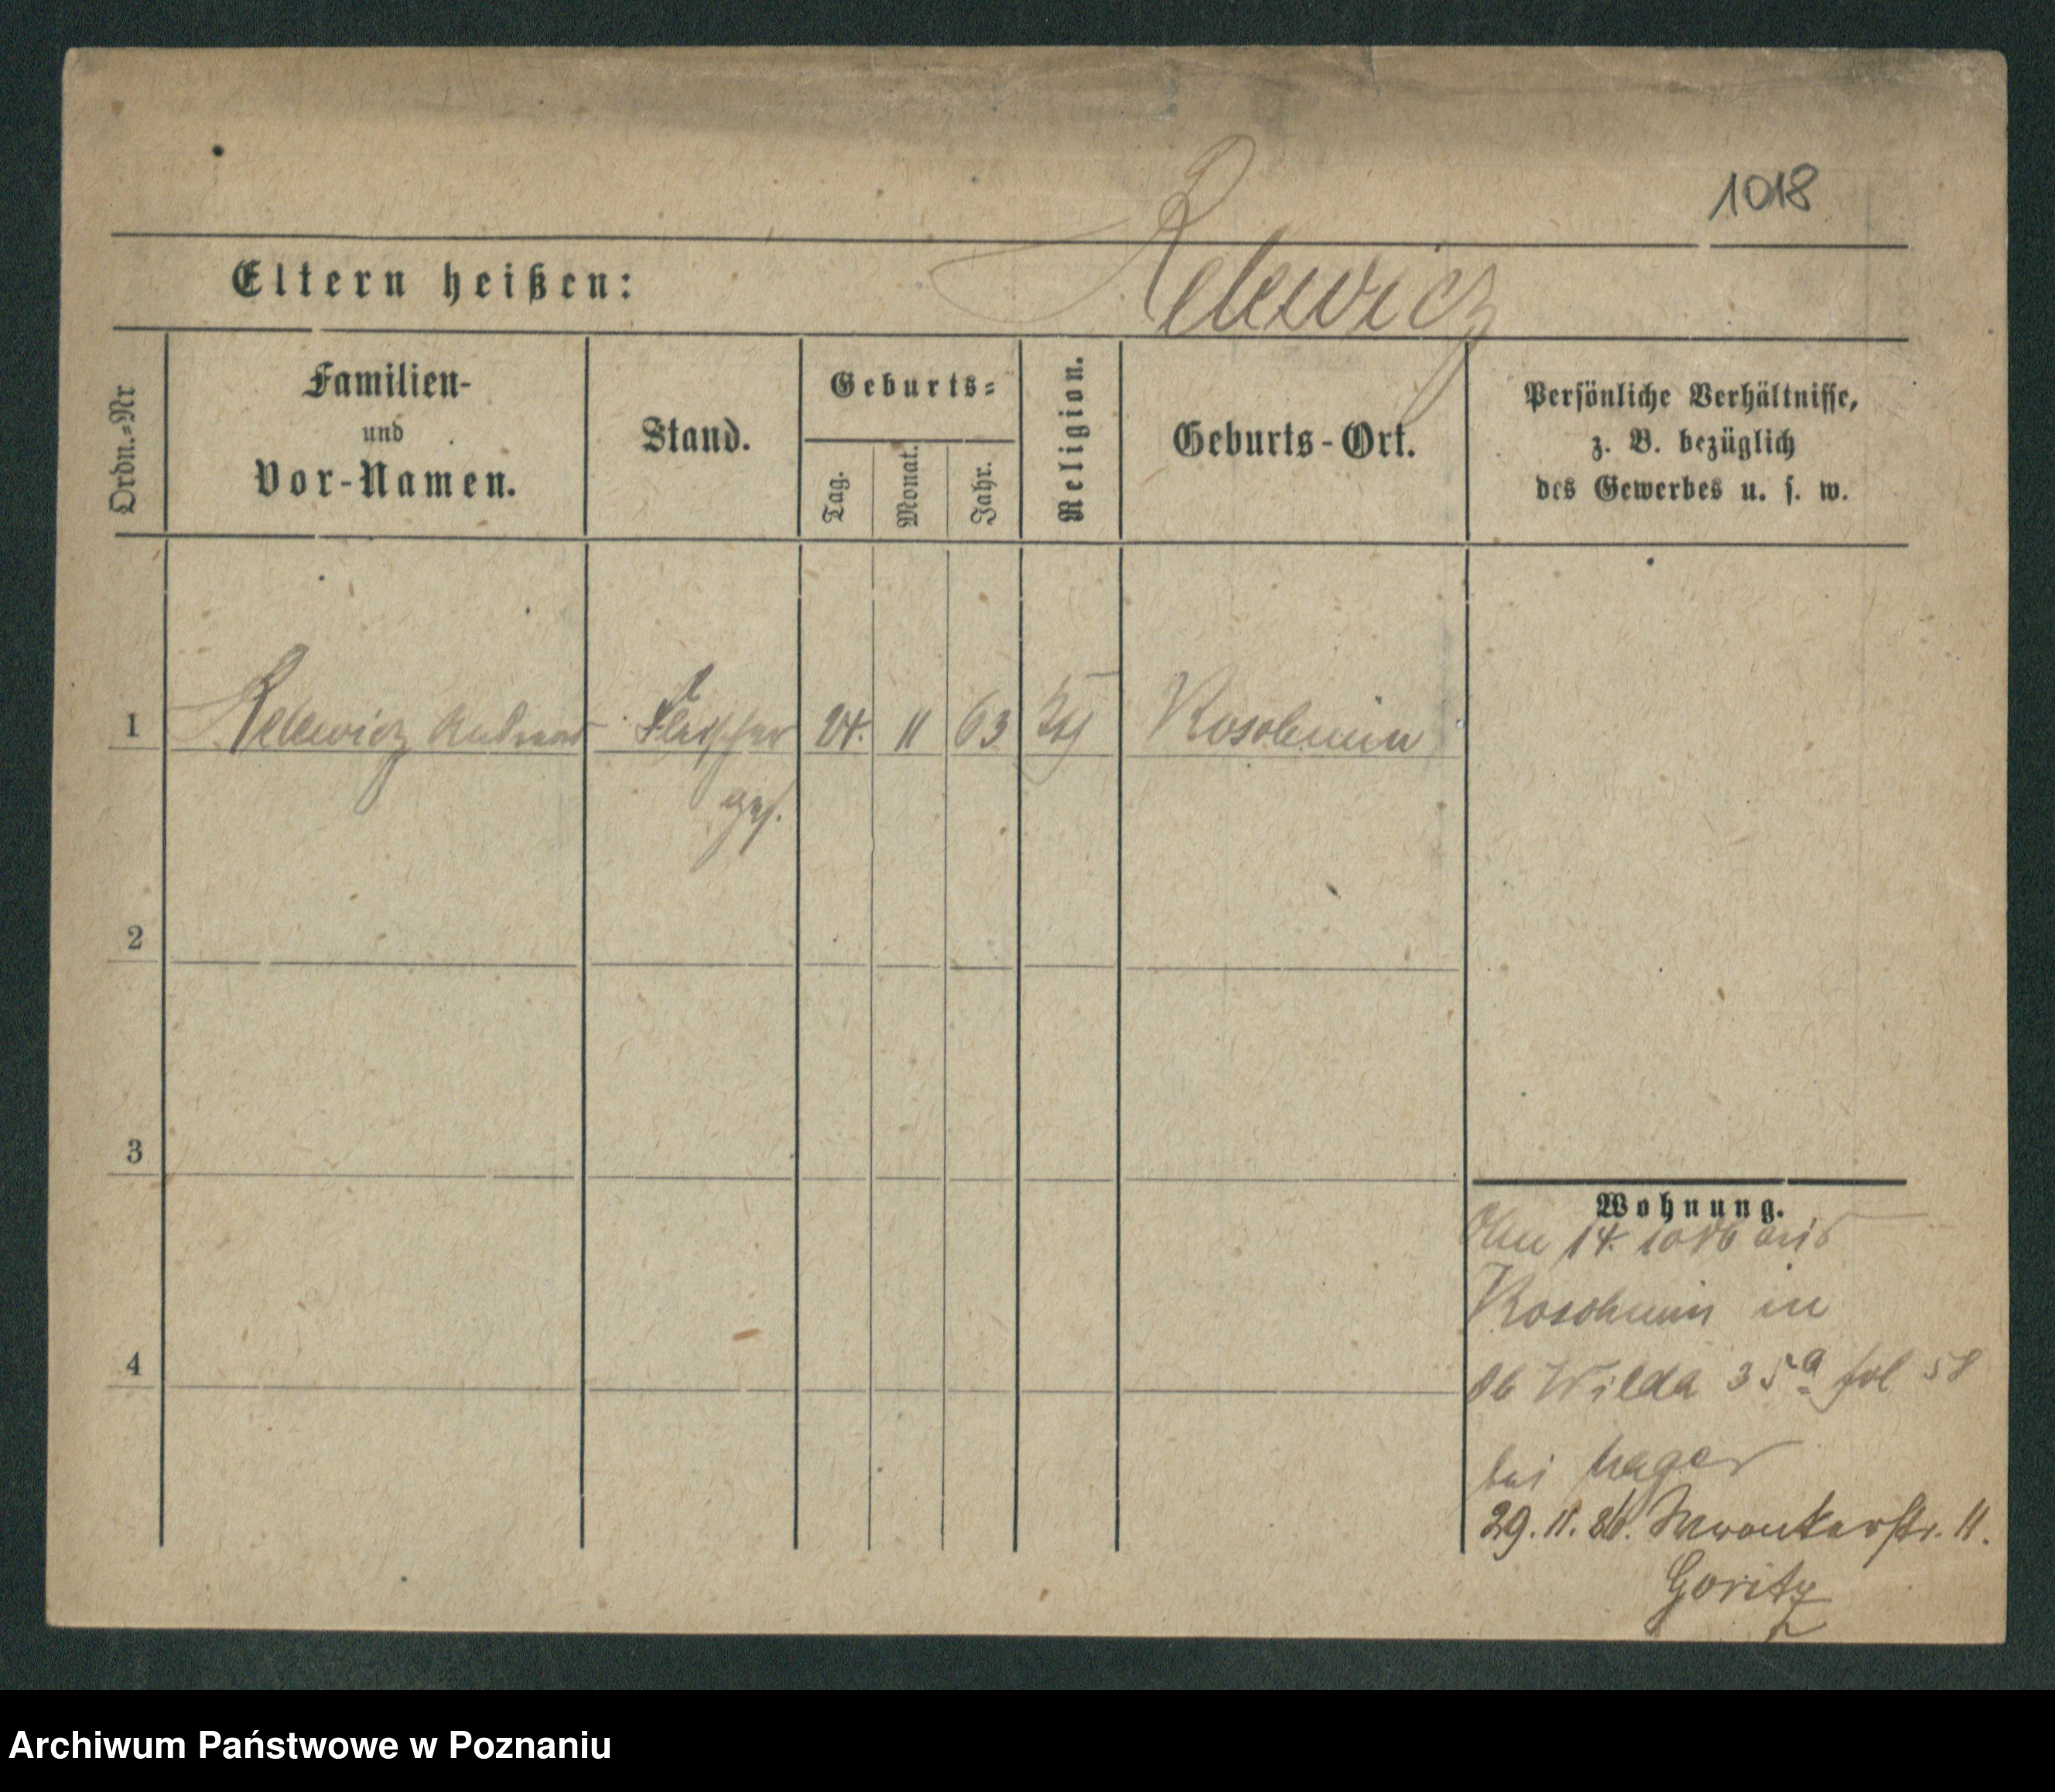 1018
Relewicz
Eltern heißen:
Ordn.=Nr
Familien-
und
Vor-Namen.
Stand.
Geburts=
Tag.
Monat.
Jahr.
Religion.
Geburts-Ort.
Persönliche Verhältnisse,
z. B. bezüglich
des Gewerbes u. s. w.
1 Relewicz Andreas Fleischer 24. 11 63 Kth Koschmin
ges.
2
3
4
Wohnung.
14. 10 86 aus
Koschmin in
Ob Wilda 35a fol 58
bei Hager
29. 11. 86. 11.
Goritz
Archiwum Państwowe w Poznaniu